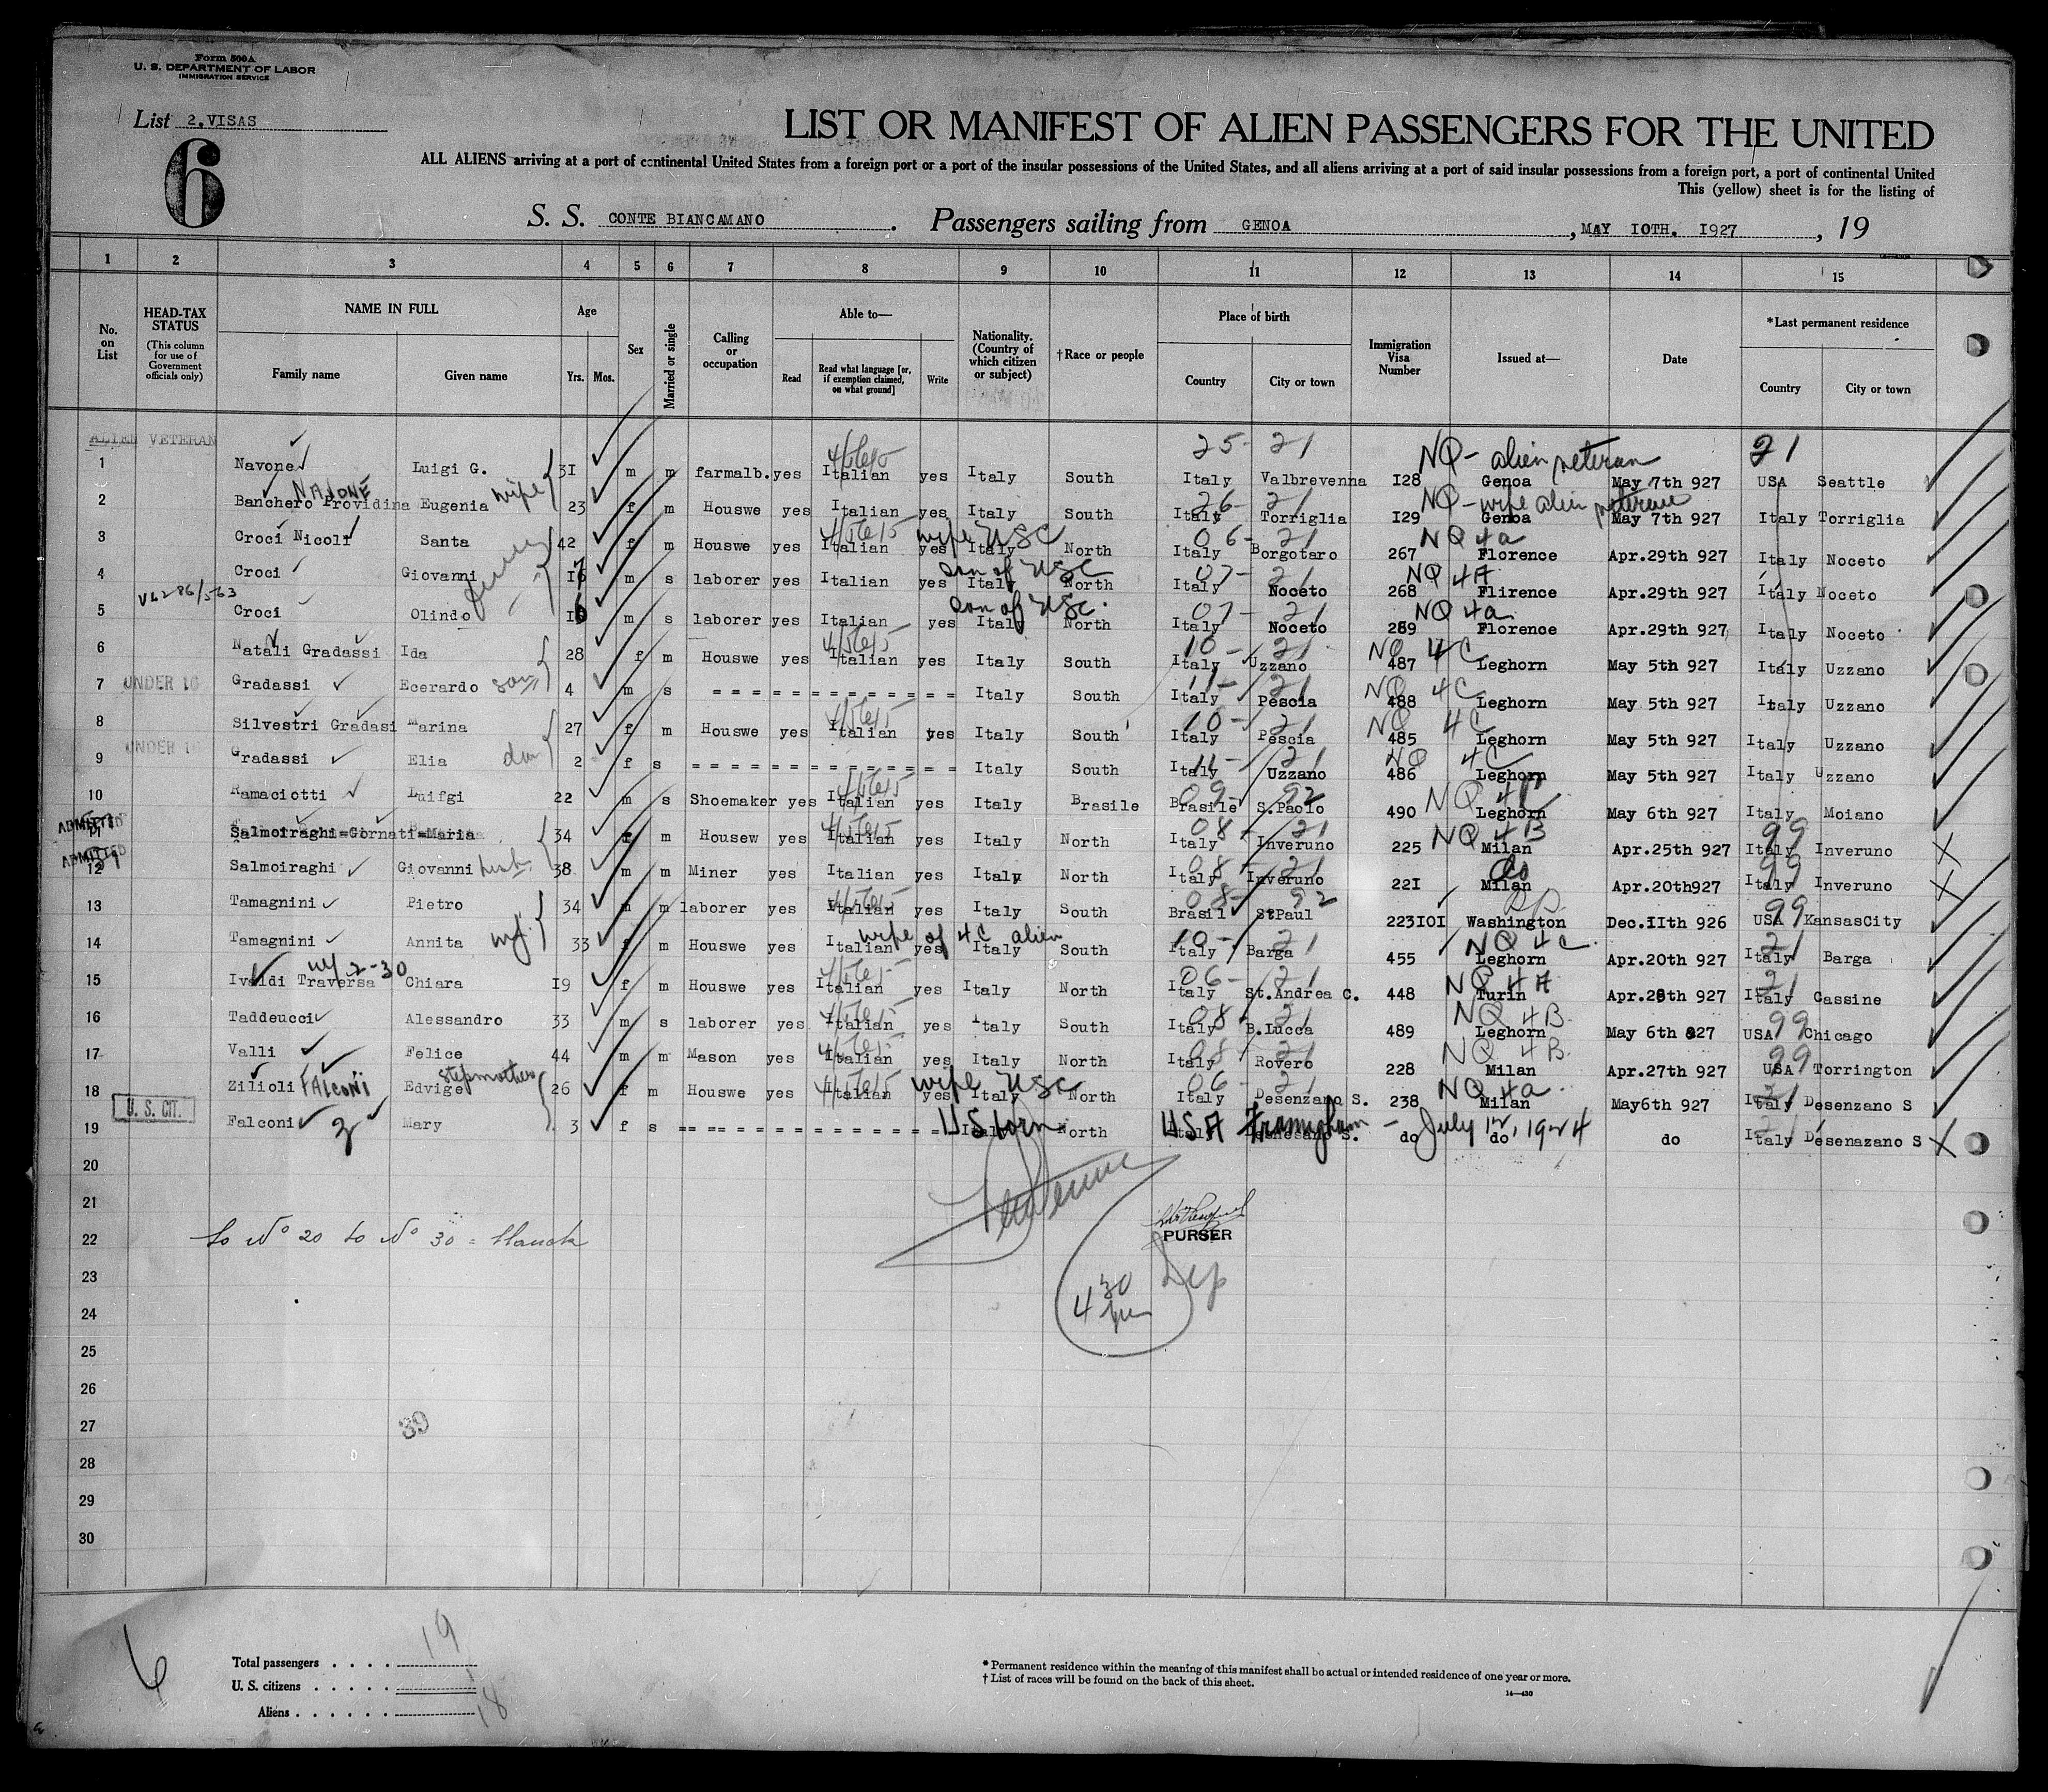 Form 500A
U. S. DEPARTMENT OF LABOR
IMMIGRATION SERVICE
List 2.VISAS
6
LIST OR MANIFEST OF ALIEN PASSENGERS FOR THE UNITED
ALL ALIENS arriving at a port of continental United States from a foreign port or a port of the insular possessions of the United States, and all aliens arriving at a port of said insular possessions from a foreign port, a port of continental United
This (yellow) sheet is for the listing of
S. S. CONTE BIANCAMANO. Passengers sailing from GENOA, MAY IOTH. I927, 19
1 2 3 4 5 6 7 8 9 10 11 12 13 14 15
No. on List
HEAD-TAX STATUS (This column for use of Government officials only)
NAME IN FULL Family name Given name
Age Yrs. Mos.
Sex
Married or single
Calling or occupation
Able to— Read Read what language [or, if exemption claimed, on what ground] Write
Nationality. (Country of which citizen or subject)
†Race or people
Place of birth Country City or town
Immigration Visa Number
Issued at—
Date
*Last permanent residence Country City or town
ALIEN VETERAN 25- 21 NQ- alien veteran 21
1 Navone Luigi G. 3I m m farmalb. yes Italian yes Italy South Italy Valbrevenna I28 Genoa May 7th 927 USA Seattle
NAVONE wife 26- 21 NQ-wife alien veteran
2 Banchero Providina Eugenia 23 f m Houswe yes Italian yes Italy South Italy Torriglia I29 Genoa May 7th 927 Italy Torriglia
wife USC 06- 21 NQ 4a
3 Croci Nicoli Santa 42 f m Houswe yes Italian yes Italy North Italy Borgotaro 267 Florence Apr.29th 927 Italy Noceto
son of USC 07- 21 NQ 4A
4 Croci Giovanni m s laborer yes Italian yes Italy North Italy Noceto 268 Flirence Apr.29th 927 Italy Noceto
son of USC. 07- 21 NQ 4a
5 Croci Olindo m s laborer yes Italian yes Italy North Italy Noceto 269 Florence Apr.29th 927 Italy Noceto
10- 21 NQ 4C
6 Natali Gradassi Ida 28 f m Houswe yes Italian yes Italy South Italy Uzzano 487 Leghorn May 5th 927 Italy Uzzano
UNDER 16 son 11- 21 NQ 4C
7 Gradassi Ecerardo 4 m s Italy South Italy Pescia 488 Leghorn May 5th 927 Italy Uzzano
10- 21 NQ 4C
8 Silvestri Gradasi Marina 27 f m Houswe yes Italian yes Italy South Italy Pescia 485 Leghorn May 5th 927 Italy Uzzano
UNDER 16 11- 21 NQ 4C
9 Gradassi Elia 2 f s Italy South Italy Uzzano 486 Leghorn May 5th 927 Italy Uzzano
09- 92 NQ
10 Ramaciotti Luifgi 22 m s Shoemaker yes Italian yes Italy Brasile Brasile S.Paolo 490 Leghorn May 6th 927 Italy Moiano
ADMITTED 08- 21 NQ 4B 99
Salmoiraghi=Cornati=Maria 34 f m Housew yes Italian yes Italy North Italy Inveruno 225 Milan Apr.25th 927 Italy Inveruno
ADMITTED 08- 21 do 99
12 Salmoiraghi Giovanni 38 m m Miner yes Italian yes Italy North Italy Inveruno 22I Milan Apr.20th927 Italy Inveruno
08- 92 99
13 Tamagnini Pietro 34 m m laborer yes Italian yes Italy South Brasil St.Paul 223IOI Washington Dec.IIth 926 USA KansasCity
wife of 4C alien 10- 21 NQ 4C 21
14 Tamagnini Annita 33 f m Houswe yes Italian yes Italy South Italy Barga 455 Leghorn Apr.20th 927 Italy Barga
2-30 06- 21 NQ 4A 21
15 Ivaldi Traversa Chiara I9 f m Houswe yes Italian yes Italy North Italy St.Andrea C. 448 Turin Apr.28th 927 Italy Cassine
08 21 NQ 4B 99
16 Taddeucci Alessandro 33 m s laborer yes Italian yes Italy South Italy B.Lucca 489 Leghorn May 6th 927 USA Chicago
08 21 NQ 4B 99
17 Valli Felice 44 m m Mason yes Italian yes Italy North Italy Rovero 228 Milan Apr.27th 927 USA Torrington
FALCONI stepmother wife USC 06- 21 NQ 4a. 21
18 Zilioli Edvige 26 f m Houswe yes Italian yes Italy North Italy Desenzano S. 238 Milan May6th 927 Italy Desenzano S
U. S. CIT. US born USA Framigham - July 12, 1924
19 Falconi Mary 3 f s North do do do Italy Desenazano S
20
21
22 to No 20 to No 30 =
PURSER
23
430
24
25
26
27
39
28
29
30
6
Total passengers . . . . 19
U. S. citizens . . . . . 1
Aliens . . . . . . 18
* Permanent residence within the meaning of this manifest shall be actual or intended residence of one year or more.
† List of races will be found on the back of this sheet.
14—430